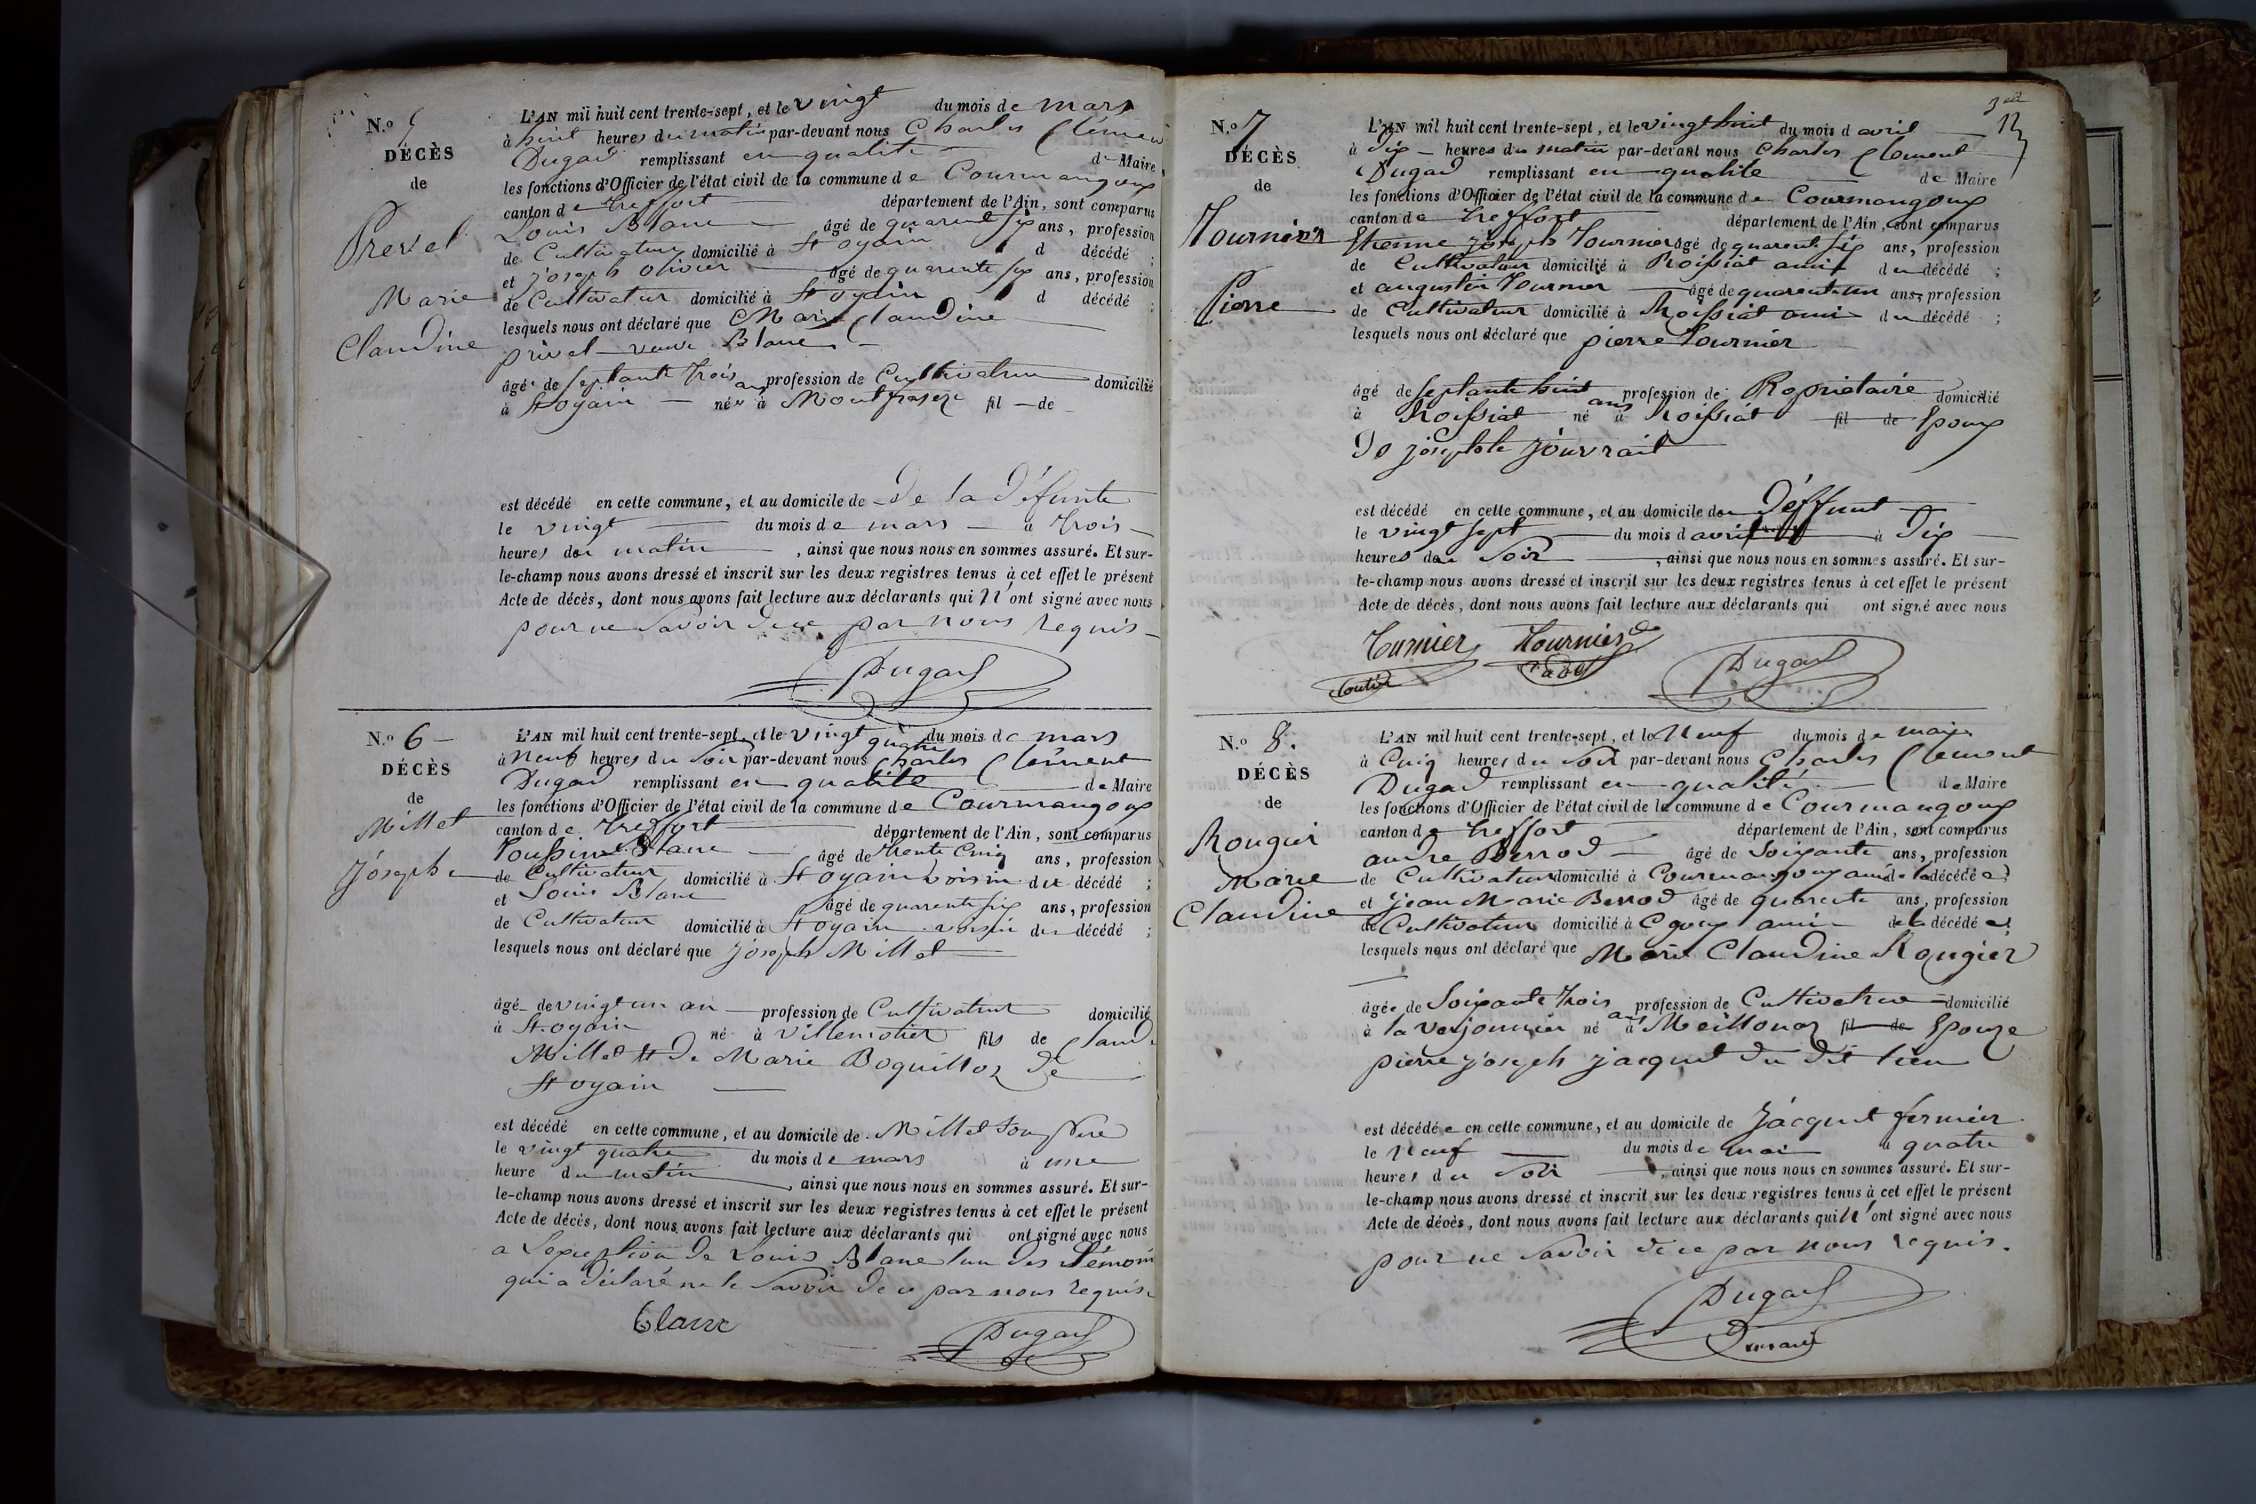 N.o 5
DÉCÈS
de
Prevel
Marie
Claudine
L'AN mil huit cent trente-sept, et le vingt du mois de mars
à huit heures du matin par-devant nous Charles Clément
Dugad remplissant en qualité de Maire
les fonctions d'Officier de l'état civil de la commune de Courmangoux
canton de treffort département de l'Ain, sont comparus
Louis Blanc âgé de quarente six ans, profession
de Cultivateur domicilié à St oyain d décédé ;
et joseph olivier âgé de quarente six ans, profession
de Cultivateur domicilié à St oyain d décédé ;
lesquels nous ont déclaré que Marie Claudine
prével veuve Blanc
âgée de septante trois ans profession de Cultivatrice domicilié
à St oyain née à Montfrasez fil de
est décédé en cette commune, et au domicile de de la défunte
le vingt du mois de mars à trois
heures du matin , ainsi que nous nous en sommes assuré. Et sur-
le-champ nous avons dressé et inscrit sur les deux registres tenus à cet effet le présent
Acte de décès, dont nous avons fait lecture aux déclarants qui n'ont signé avec nous
pour ne savoir de ce par nous requis
Dugad
N.o 6
DÉCÈS
de
Millet
Joseph
L'AN mil huit cent trente-sept, et le vingt quatre du mois de mars
à neuf heures du soir par-devant nous Charles Clément
Dugad remplissant en qualité de Maire
les fonctions d'Officier de l'état civil de la commune de Courmangoux
canton de treffort département de l'Ain, sont comparus
Toussint Blanc âgé de trente Cinq ans, profession
de Cultivateur domicilié à St oyain voisin du décédé ;
et Louis Blanc âgé de quarente six ans, profession
de Cultivateur domicilié à St oyain voisin du décédé ;
lesquels nous ont déclaré que joseph Millet
âgé de vingt un an profession de Cultivateur domicilié
à St oyain né à villemotier fils de Claude
Millet et de Marie Boquilloz de
St oyain
est décédé en cette commune, et au domicile de Millet son père
le vingt quatre du mois de mars à une
heure du matin , ainsi que nous nous en sommes assuré. Et sur-
le-champ nous avons dressé et inscrit sur les deux registres tenus à cet effet le présent
Acte de décès, dont nous avons fait lecture aux déclarants qui ont signé avec nous
a l'exception de Louis Blanc l'un des témoins
qui a déclaré ne le savoir de ce par nous requis
Blanc Dugad
3et
13
N.o 7
DÉCÈS
de
Tournier
Pierre
L'AN mil huit cent trente-sept, et le vingt huit du mois d avril
à dix heures du matin par-devant nous Charles Clément
Dugad remplissant en qualité de Maire
les fonctions d'Officier de l'état civil de la commune de Courmangoux
canton de treffort département de l'Ain, sont comparus
Etienne joseph Tournier âgé de quarent six ans, profession
de Cultivateur domicilié à Roissiat ami du décédé ;
et augustin Tournier âgé de quarent un ans, profession
de Cultivateur domicilié à Roissiat ami du décédé ;
lesquels nous ont déclaré que pierre Tournier
âgé de septante huit ans profession de Ropriétaire domicilié
à Roissiat né à Roissiat fil de Epoux
De josephte jouvrait
est décédé en cette commune, et au domicile du Déffunt
le vingt sept du mois d avril à dix
heures du soir , ainsi que nous nous en sommes assuré. Et sur-
le-champ nous avons dressé et inscrit sur les deux registres tenus à cet effet le présent
Acte de décès, dont nous avons fait lecture aux déclarants qui ont signé avec nous
Turnier Tournier Dugad
N.o 8.
DÉCÈS
de
Rougier
Marie
Claudine
L'AN mil huit cent trente-sept, et le Neuf du mois de mai
à Cinq heures du soir par-devant nous Charles Clément
Dugad remplissant en qualité de Maire
les fonctions d'Officier de l'état civil de la commune de Courmangoux
canton de treffort département de l'Ain, sont comparus
andre Berrod âgé de Soixante ans, profession
de Cultivateur domicilié à Courmangoux ami de la décédée
et jean Marie Berrod âgé de quarente ans, profession
de Cultivateur domicilié à Cgoux ami de la décédée
lesquels nous ont déclaré que Marie Claudine Rougier
âgée de Soixante trois ans profession de Cultivatrice domicilié
à la verjonnier né à Meillonaz fil de Epouze
pierre joseph jacquet du dit lieu
est décédée en cette commune, et au domicile de Jacquet fermier
le Neuf du mois de mai à quatre
heures du soir , ainsi que nous nous en sommes assuré. Et sur-
le-champ nous avons dressé et inscrit sur les deux registres tenus à cet effet le présent
Acte de décès, dont nous avons fait lecture aux déclarants qui n'ont signé avec nous
pour ne savoir de ce par nous requis.
Dugad